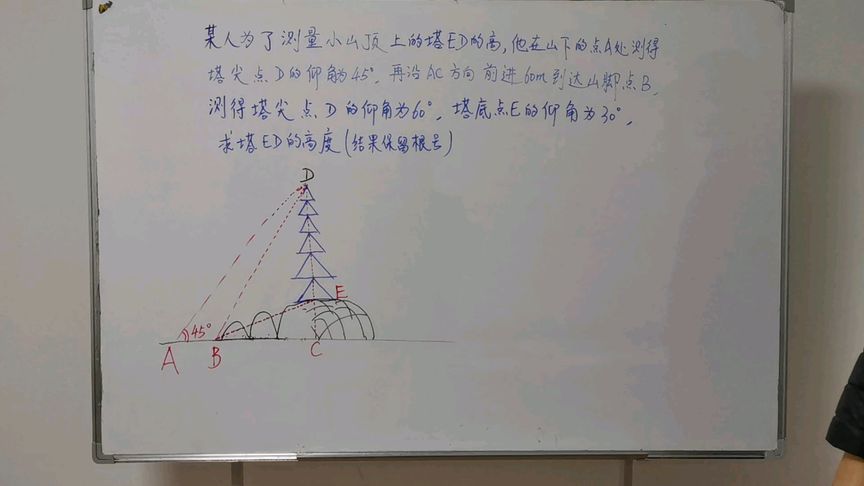 某人为了测量小山顶上的塔ED的高，他在山下的点A处测得
塔尖点D的仰角为45°，再沿AC方向前进60m到达山脚点B，
测得塔尖点D的仰角为60°，塔底点E的仰角为30°，
求塔ED的高度（结果保留根号）
D
E
45°
A
B
C